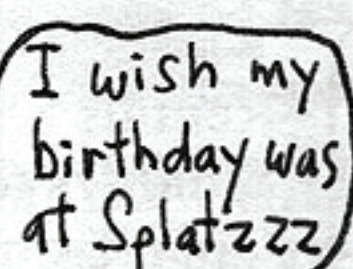 I wish my
birthday was
at Splatzzz